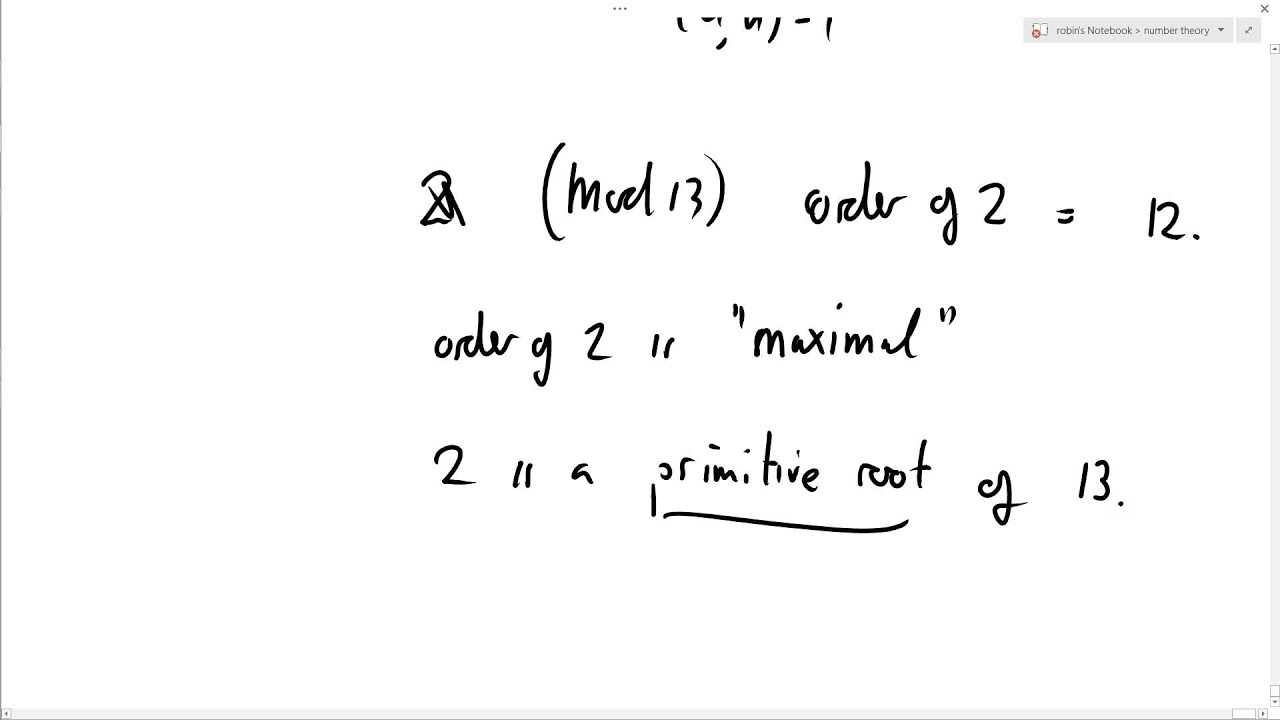 robin's Notebook > number theory
(mod 13) order of 2 = 12.
order of 2 is "maximal"
2 is a primitive root of 13.